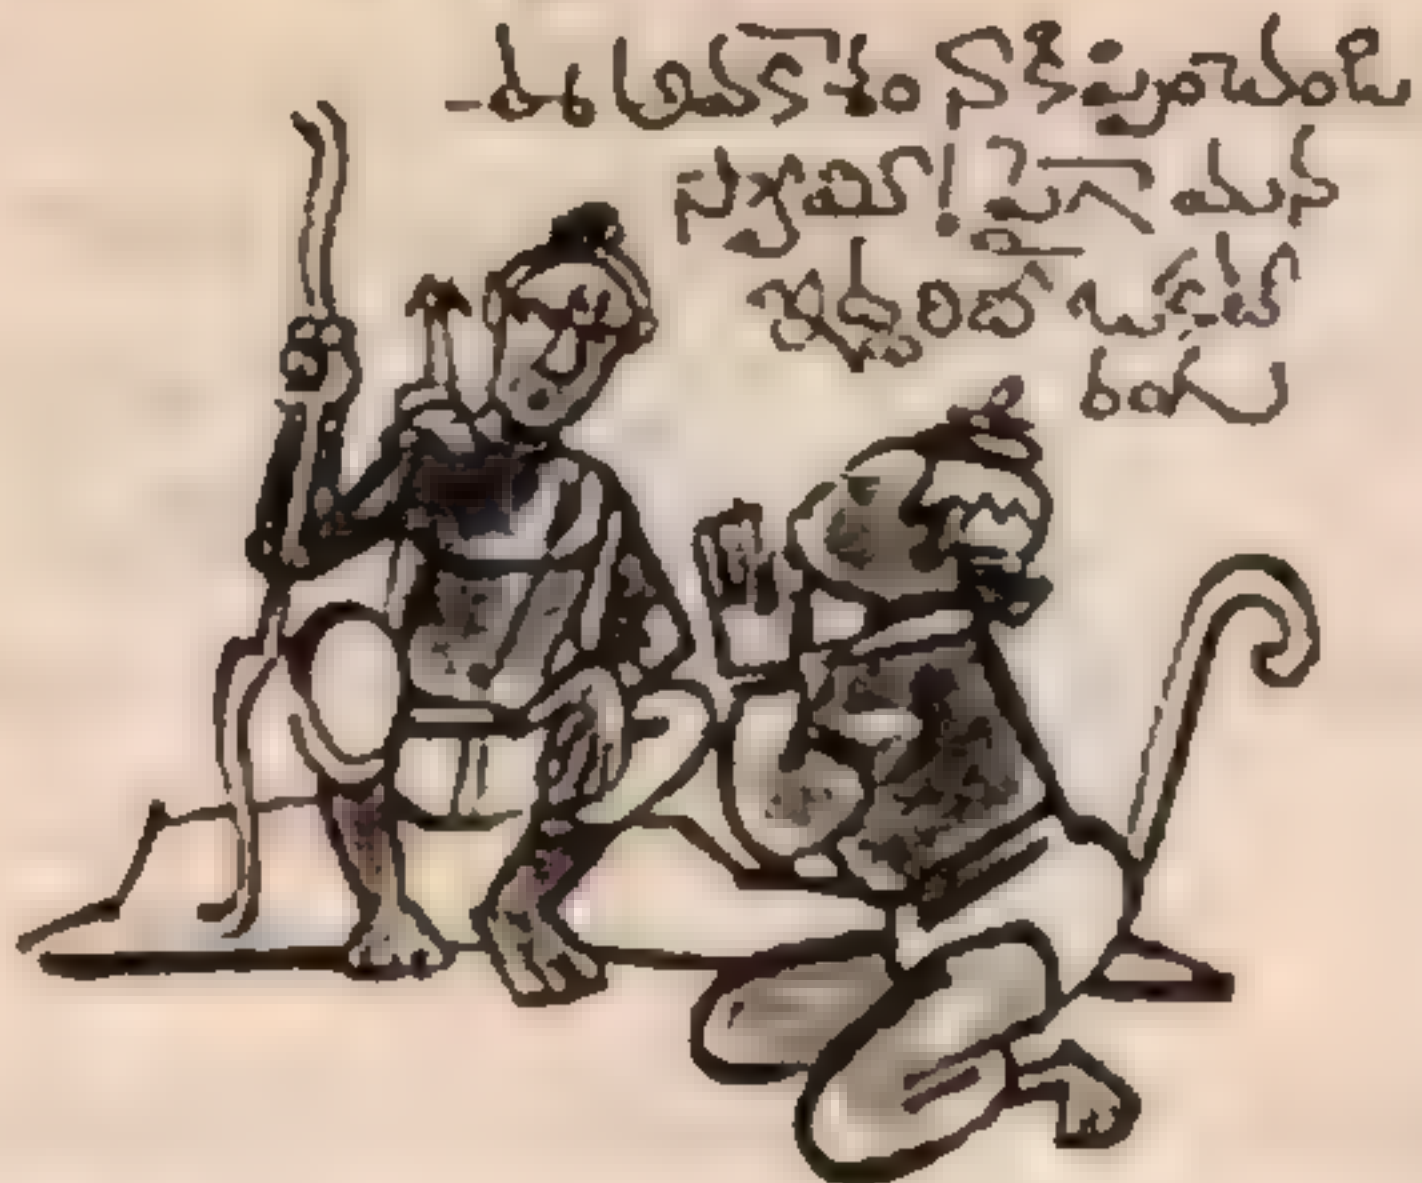 -ఈ అవకాశం నాకిప్పించండి
స్వామీ! పైగా మన
ఇద్దరిదీ ఒకటే
రంగు